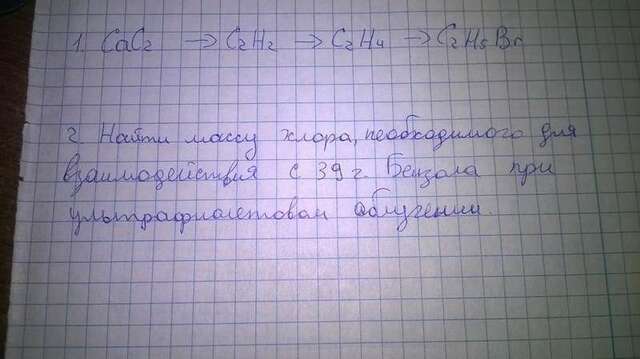 1. CaC2 → C2H2 → C2H4 → C2H5Br
2 Найти массу хлора, необходимого для
взаимодействия с 39 г. Бензола при
ультрафиолетовом облучении.